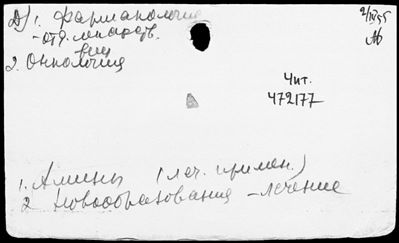 Д) 1. Фармакология
- отд. лекарств.
вещ
2. Онкология
2/IV 55
Чит.
472177
1. Амины (леч. примен.)
2 Новообразования - лечение